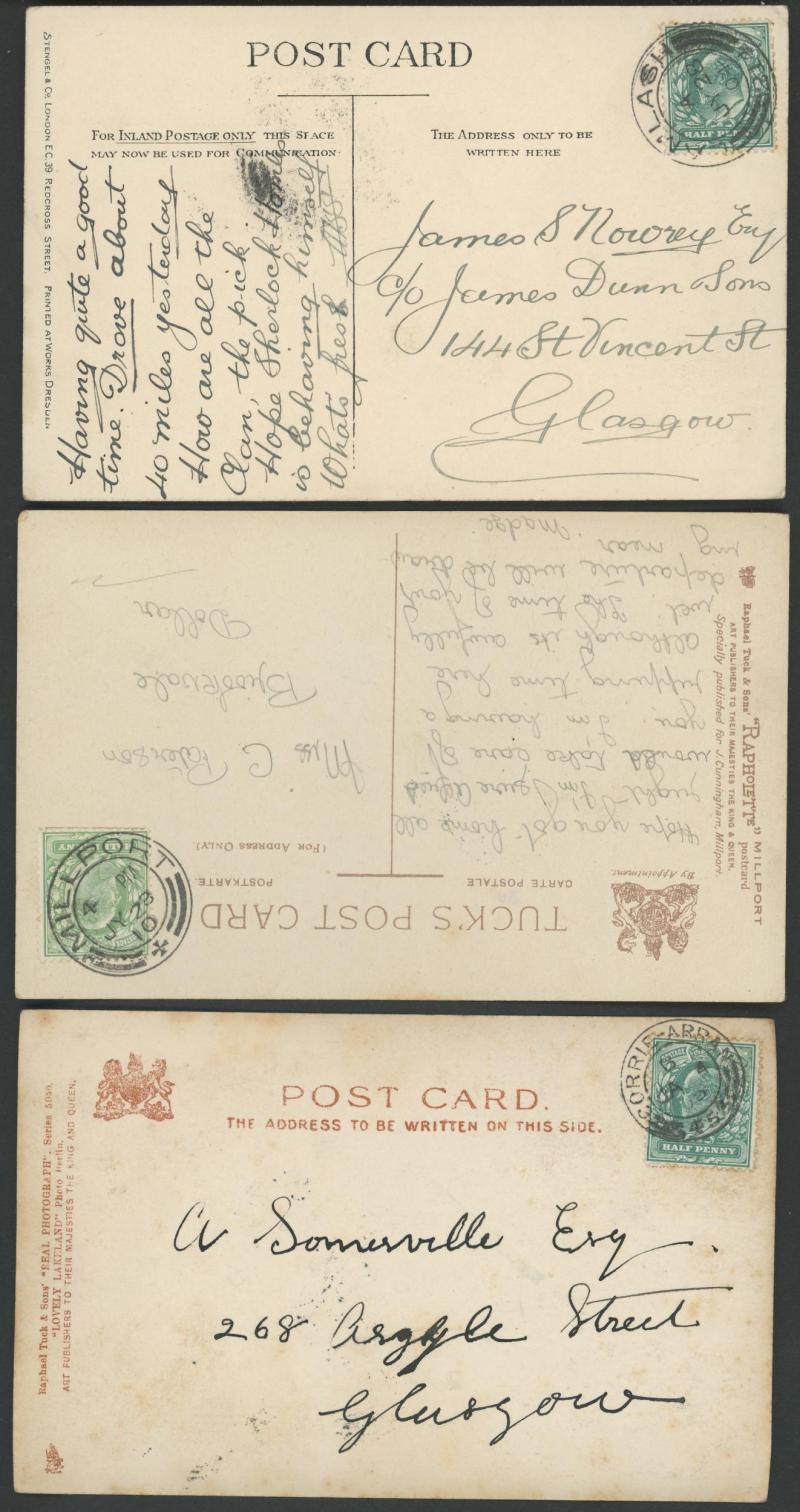 POST CARD
FOR INLAND POSTAGE ONLY THIS SPACE
MAY NOW BE USED FOR COMMUNICATION.
THE ADDRESS ONLY TO BE
WRITTEN HERE
STENGEL & Co. LONDON E.C. 39 REDCROSS STREET. PRINTED AT WORKS DRESDEN
HALF PENNY
Having quite a good
time. Drove about
40 miles yesterday
How are all the
Clan, the pick
Hope Sherlock Homes
is behaving himself
Whats fresh
James S Nowrey Esq
c/o James Dunn & Sons
144 St Vincent St
Glasgow.
TUCK'S POST CARD
CARTE POSTALE
POSTKARTE
(FOR ADDRESS ONLY).
By Appointment.
Raphael Tuck & Sons' "RAPHOLETTE" MILLPORT
postcard
ART PUBLISHERS TO THEIR MAJESTIES THE KING & QUEEN.
Specially published for J. Cunningham, Millport.
MILLPORT
4 PM
JY 23
10
Hope you got home all
right I'm sure
would take care of
you. I'm having a
ripping time here
although its awfully
wet. The time of your
departure will be draw
ing near. Madge
Miss C Paterson
Dollar
POST CARD.
THE ADDRESS TO BE WRITTEN ON THIS SIDE.
Raphael Tuck & Sons' "REAL PHOTOGRAPH". Series 5050.
"LOVELY LAKELAND" Photo Berlin.
ART PUBLISHERS TO THEIR MAJESTIES THE KING AND QUEEN.
CORRIE-ARRAN
HALF PENNY
A Somerville Esq.
268 Argyle Street
Glasgow